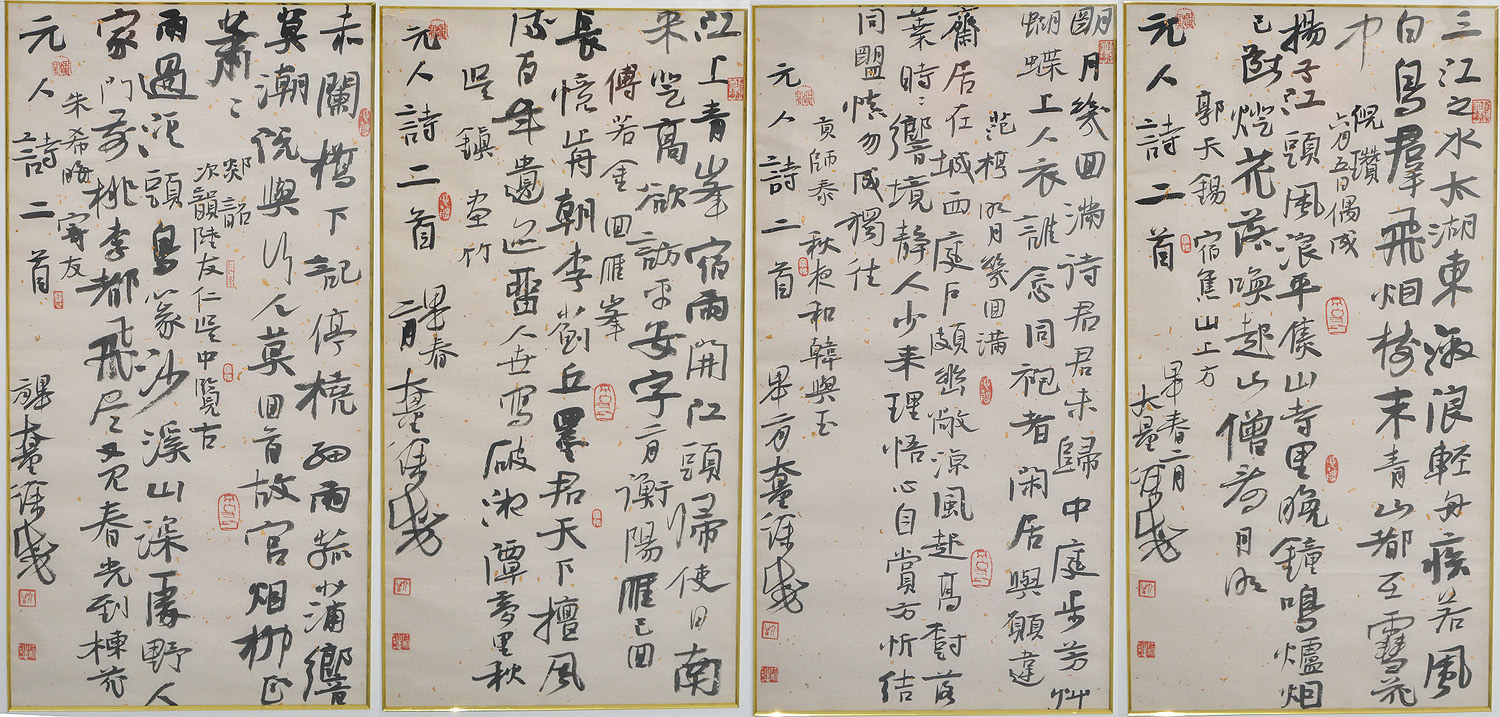 三江之水太湖東激浪輕舟疾若風
白鳥羣飛烟樹末青山都至雪花
中
倪瓚
六月五日偶成
揚子江頭風浪平焦山寺里晚鐘鳴爐烟
已斷燈花落喚起山僧看月明
郭天錫 宿焦山上方
元人詩二首
春二月
大量
明月幾回滿待君君未歸中庭步芳艸
蝴蝶上人衣誰念同袍者閑居與願違
范梈 明月幾回滿
齋居在城西庭戶頗幽敞涼風起高樹落
葉時〻響境靜人少来理悟心自賞方忻結
同盟慎勿成獨往
貢師泰 秋夜和韓與玉
元人詩二首
江上青峯宿雨開江頭歸使日南
来登高欲訪平安字二月衡陽雁已回
傅若金 回雁峯
長憶前朝李薊丘墨君天下擅風
流百年遺迹留人世寫破湘潭夢里秋
吳鎮 畫竹
元人詩二首
春
二月
赤闌橋下記停橈細雨菰蒲響
莫潮說與行人莫回首故宮烟柳正
蕭〻
郯韶
次韻陸友仁吳中覽古
雨過泥頭鳥篆沙溪山深處野人
家門前桃李都飛尽又見春光到楝花
朱希晦 寄友
元人詩二首